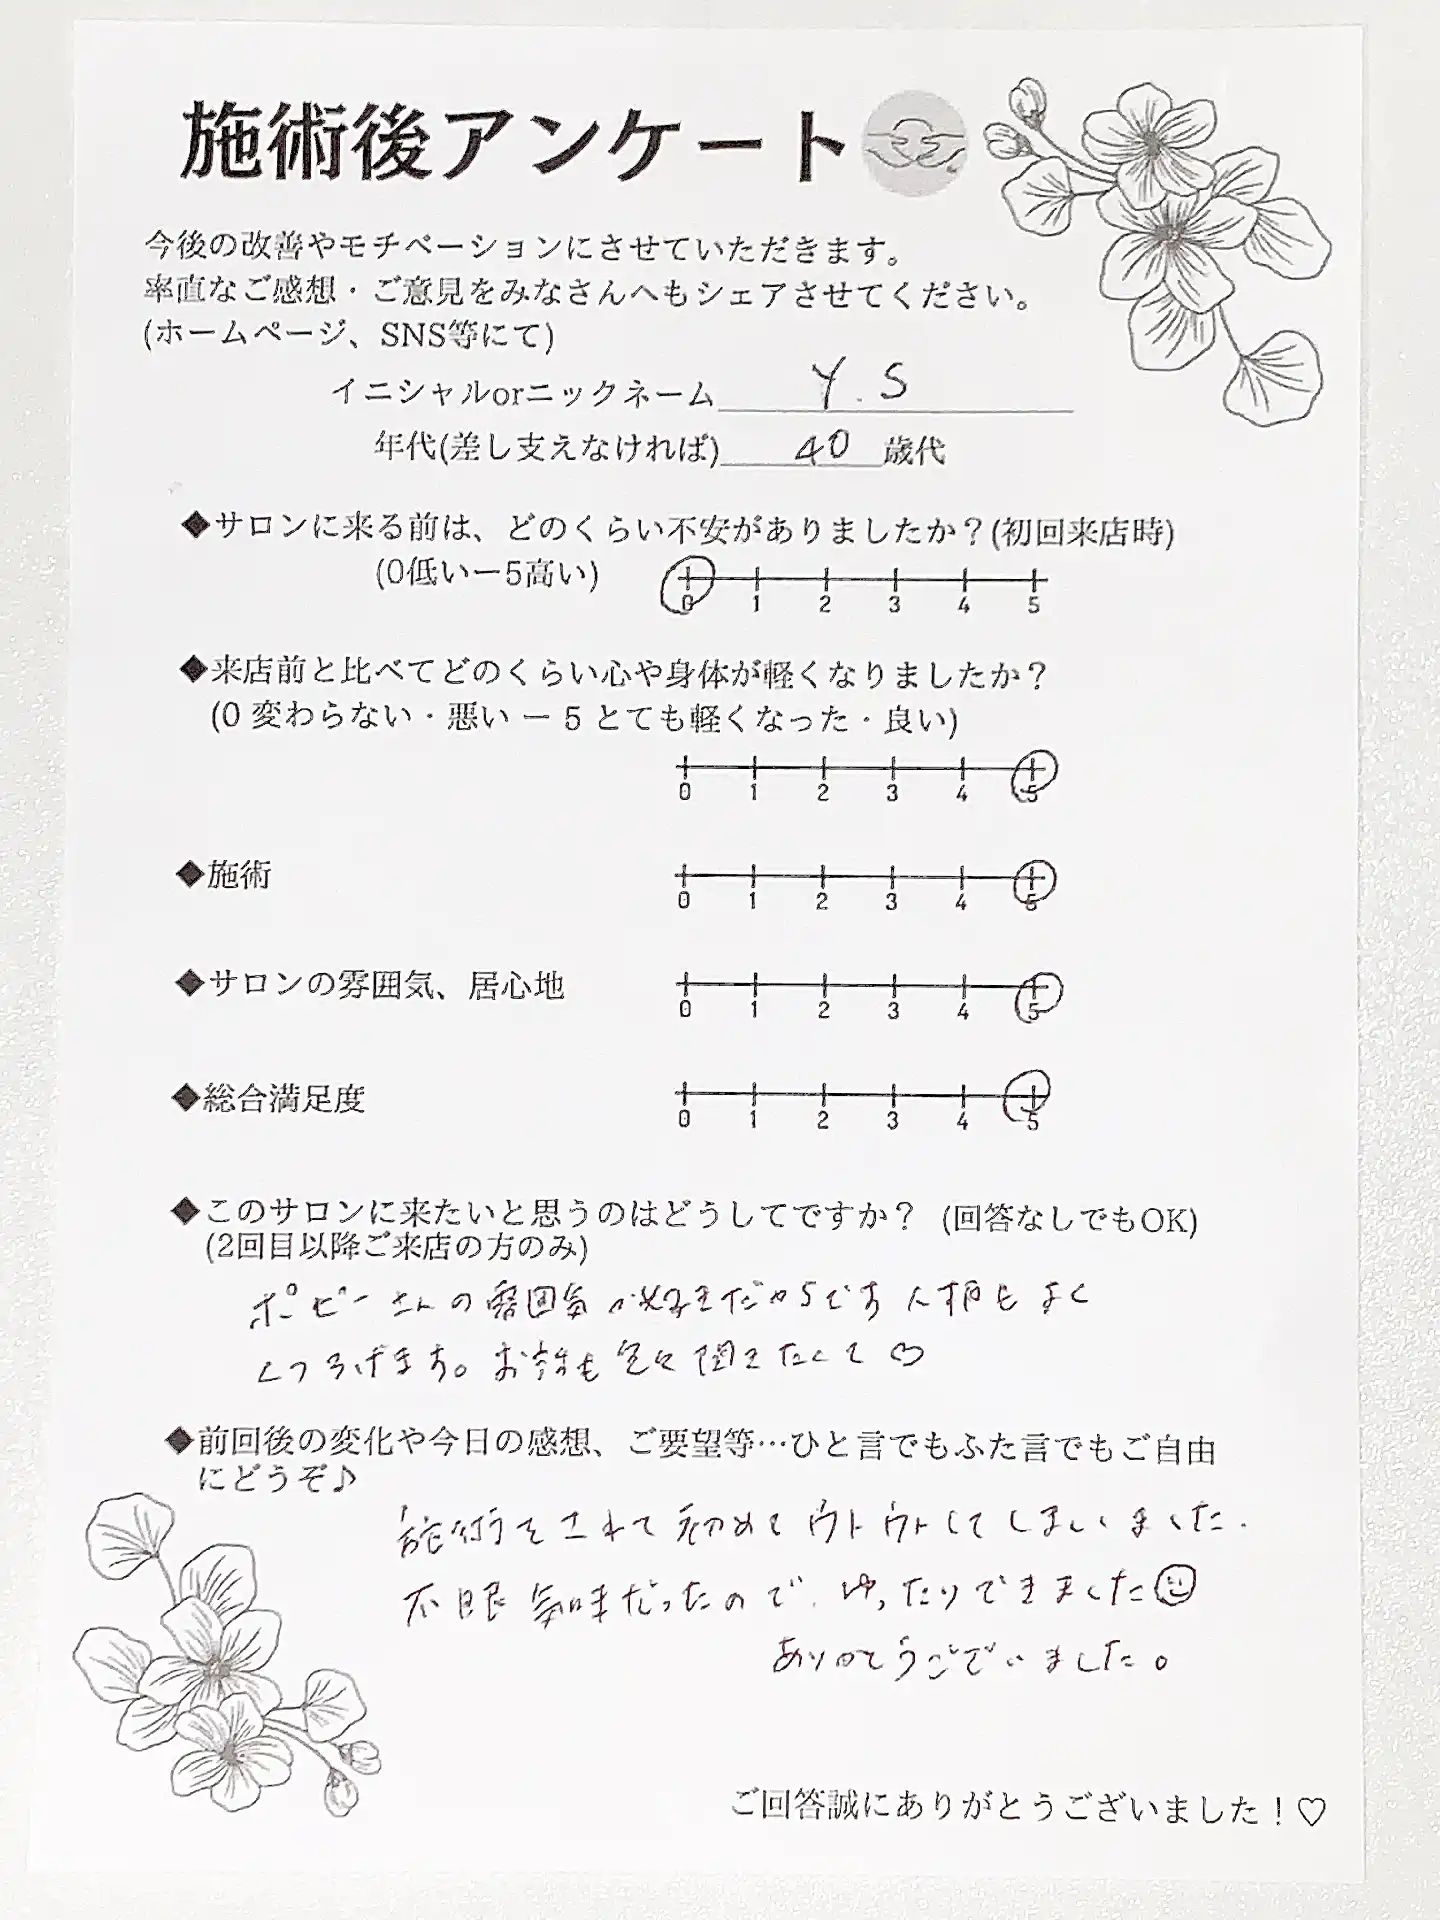 施術後アンケート
今後の改善やモチベーションにさせていただきます。
率直なご感想・ご意見をみなさんへもシェアさせてください。
(ホームページ、SNS等にて)
イニシャルorニックネーム Y.S
年代(差し支えなければ) 40 歳代
◆サロンに来る前は、どのくらい不安がありましたか？(初回来店時)
(0低いー5高い)
0 1 2 3 4 5
◆来店前と比べてどのくらい心や身体が軽くなりましたか？
(0 変わらない・悪い ー 5 とても軽くなった・良い)
0 1 2 3 4 5
◆施術 0 1 2 3 4 5
◆サロンの雰囲気、居心地 0 1 2 3 4 5
◆総合満足度 0 1 2 3 4 5
◆このサロンに来たいと思うのはどうしてですか？ (回答なしでもOK)
(2回目以降ご来店の方のみ)
ポピーさんの雰囲気が好きだからです人柄もよく
くつろげます。お話も色々聞きたくて♡
◆前回後の変化や今日の感想、ご要望等…ひと言でもふた言でもご自由
にどうぞ♪
施術をされて初めてウトウトしてしまいました.
不眠気味だったので、ゆったりできました☺
ありがとうございました。
ご回答誠にありがとうございました！♡